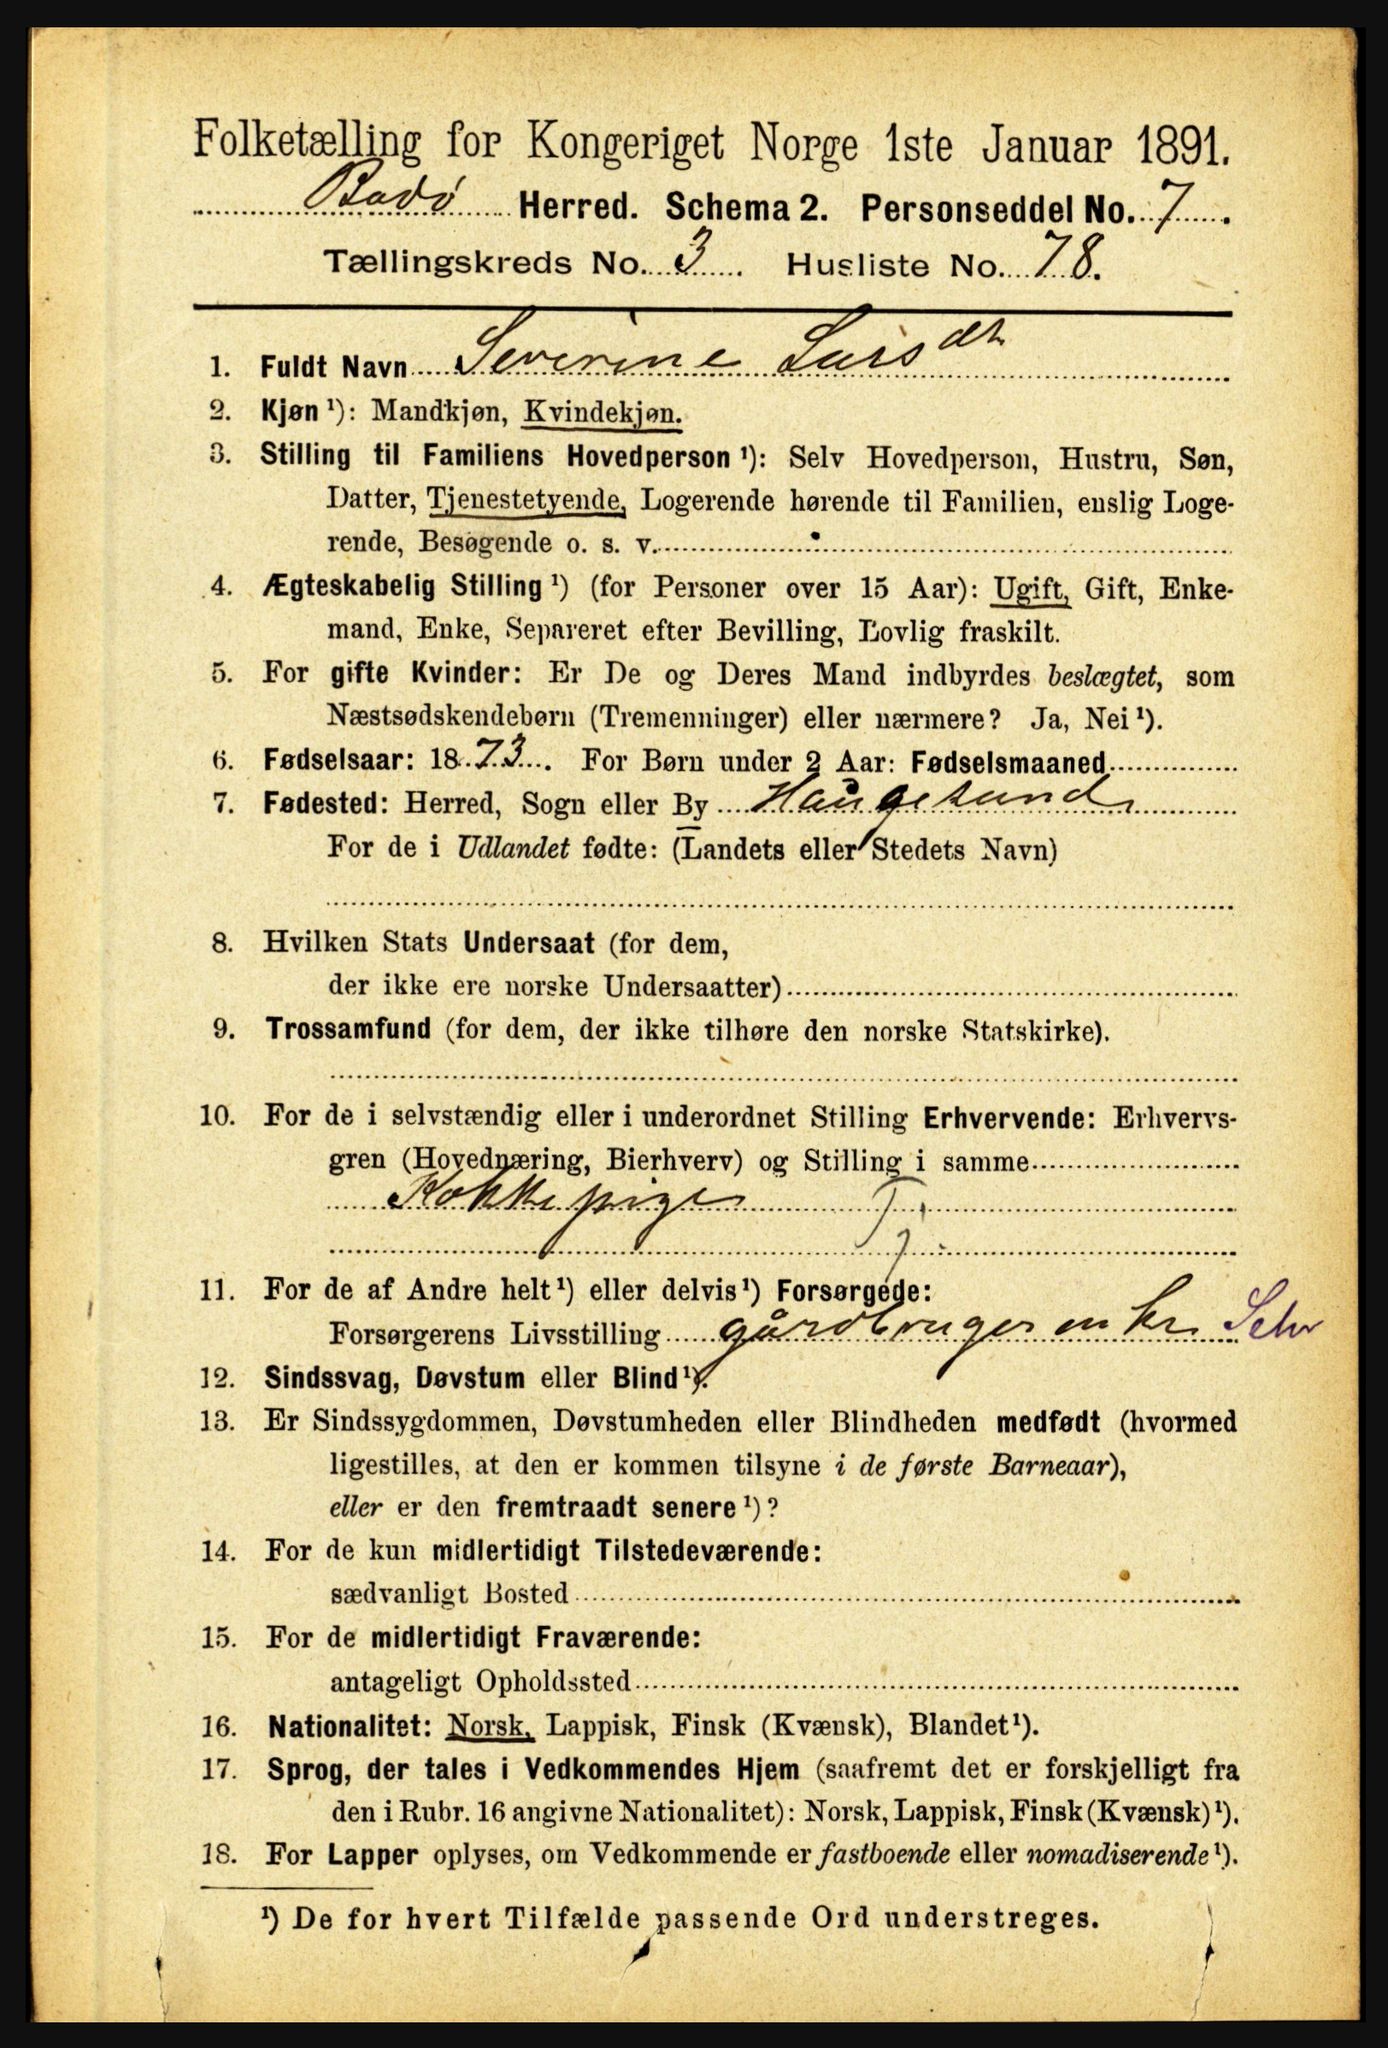 Folketælling for Kongeriget Norge 1ste Januar 1891.
Bodø Herred. Schema 2. Personseddel No. 7.
Tællingskreds No. 3. Husliste No. 78.
1. Fuldt Navn Severine Larsdt
2. Kjøn ¹): Mandkjøn, Kvindekjøn.
3. Stilling til Familiens Hovedperson ¹): Selv Hovedperson, Hustru, Søn,
Datter, Tjenestetyende, Logerende hørende til Familien, enslig Loge-
rende, Besøgende o. s. v.
4. Ægteskabelig Stilling ¹) (for Personer over 15 Aar): Ugift, Gift, Enke-
mand, Enke, Separeret efter Bevilling, Lovlig fraskilt.
5. For gifte Kvinder: Er De og Deres Mand indbyrdes beslægtet, som
Næstsødskendebørn (Tremenninger) eller nærmere? Ja, Nei ¹).
6. Fødselsaar: 1873. For Børn under 2 Aar: Fødselsmaaned
7. Fødested: Herred, Sogn eller By Haugesund
For de i Udlandet fødte: (Landets eller Stedets Navn)
8. Hvilken Stats Undersaat (for dem,
der ikke ere norske Undersaatter)
9. Trossamfund (for dem, der ikke tilhøre den norske Statskirke).
10. For de i selvstændig eller i underordnet Stilling Erhvervende: Erhvervs-
gren (Hovednæring, Bierhverv) og Stilling i samme
Kokkepige Tj.
11. For de af Andre helt ¹) eller delvis ¹) Forsørgede:
Forsørgerens Livsstilling gårdbruger
12. Sindssvag, Døvstum eller Blind ¹).
13. Er Sindssygdommen, Døvstumheden eller Blindheden medfødt (hvormed
ligestilles, at den er kommen tilsyne i de første Barneaar),
eller er den fremtraadt senere ¹)?
14. For de kun midlertidigt Tilstedeværende:
sædvanligt Bosted
15. For de midlertidigt Fraværende:
antageligt Opholdssted
16. Nationalitet: Norsk, Lappisk, Finsk (Kvænsk), Blandet ¹).
17. Sprog, der tales i Vedkommendes Hjem (saafremt det er forskjelligt fra
den i Rubr. 16 angivne Nationalitet): Norsk, Lappisk, Finsk (Kvænsk) ¹).
18. For Lapper oplyses, om Vedkommende er fastboende eller nomadiserende ¹).
¹) De for hvert Tilfælde passende Ord understreges.